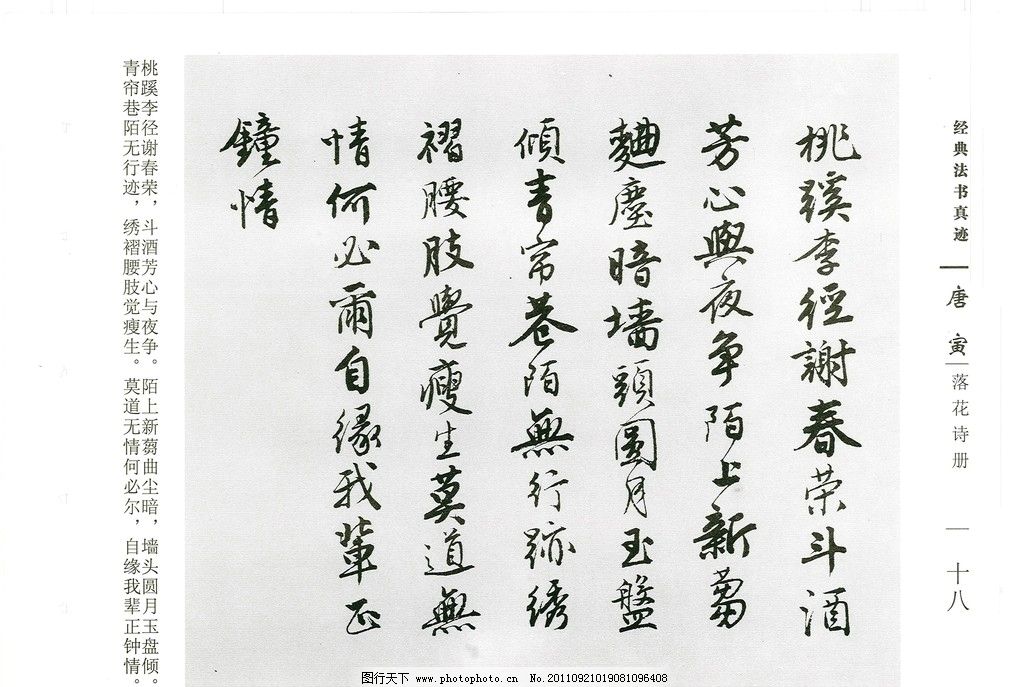 经典法书真迹
唐寅
落花诗册
一十八
桃蹊李徑謝春荣斗酒
芳心與夜争陌上新蒭
麯塵暗墙頭圆月玉盤
傾青帘巷陌無行跡绣
褶腰肢覺瘦生莫道無
情何必爾自缘我輩正
鐘情
桃蹊李径谢春荣，斗酒芳心与夜争。陌上新蒭曲尘暗，墙头圆月玉盘倾。
青帘巷陌无行迹，绣褶腰肢觉瘦生。莫道无情何必尔，自缘我辈正钟情。
图行天下 www.photophoto.cn No.20110921019081096408